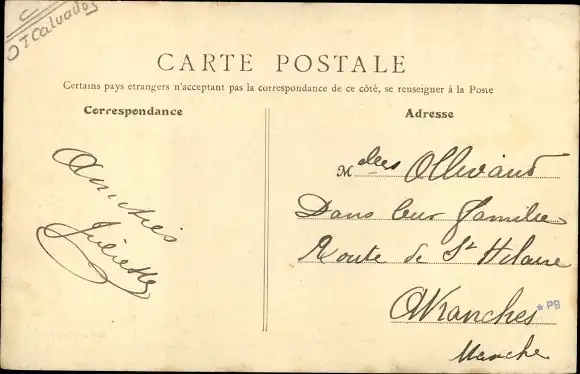 OT Calvados
CARTE POSTALE
Certains pays étrangers n'acceptant pas la correspondance de ce côté, se renseigner à la Poste
Correspondance
Adresse
Amitiés
Juliette
Mdlles Ollivaud
Dans leur famille
Route de St Hilaire
Avranches
* PB
Manche